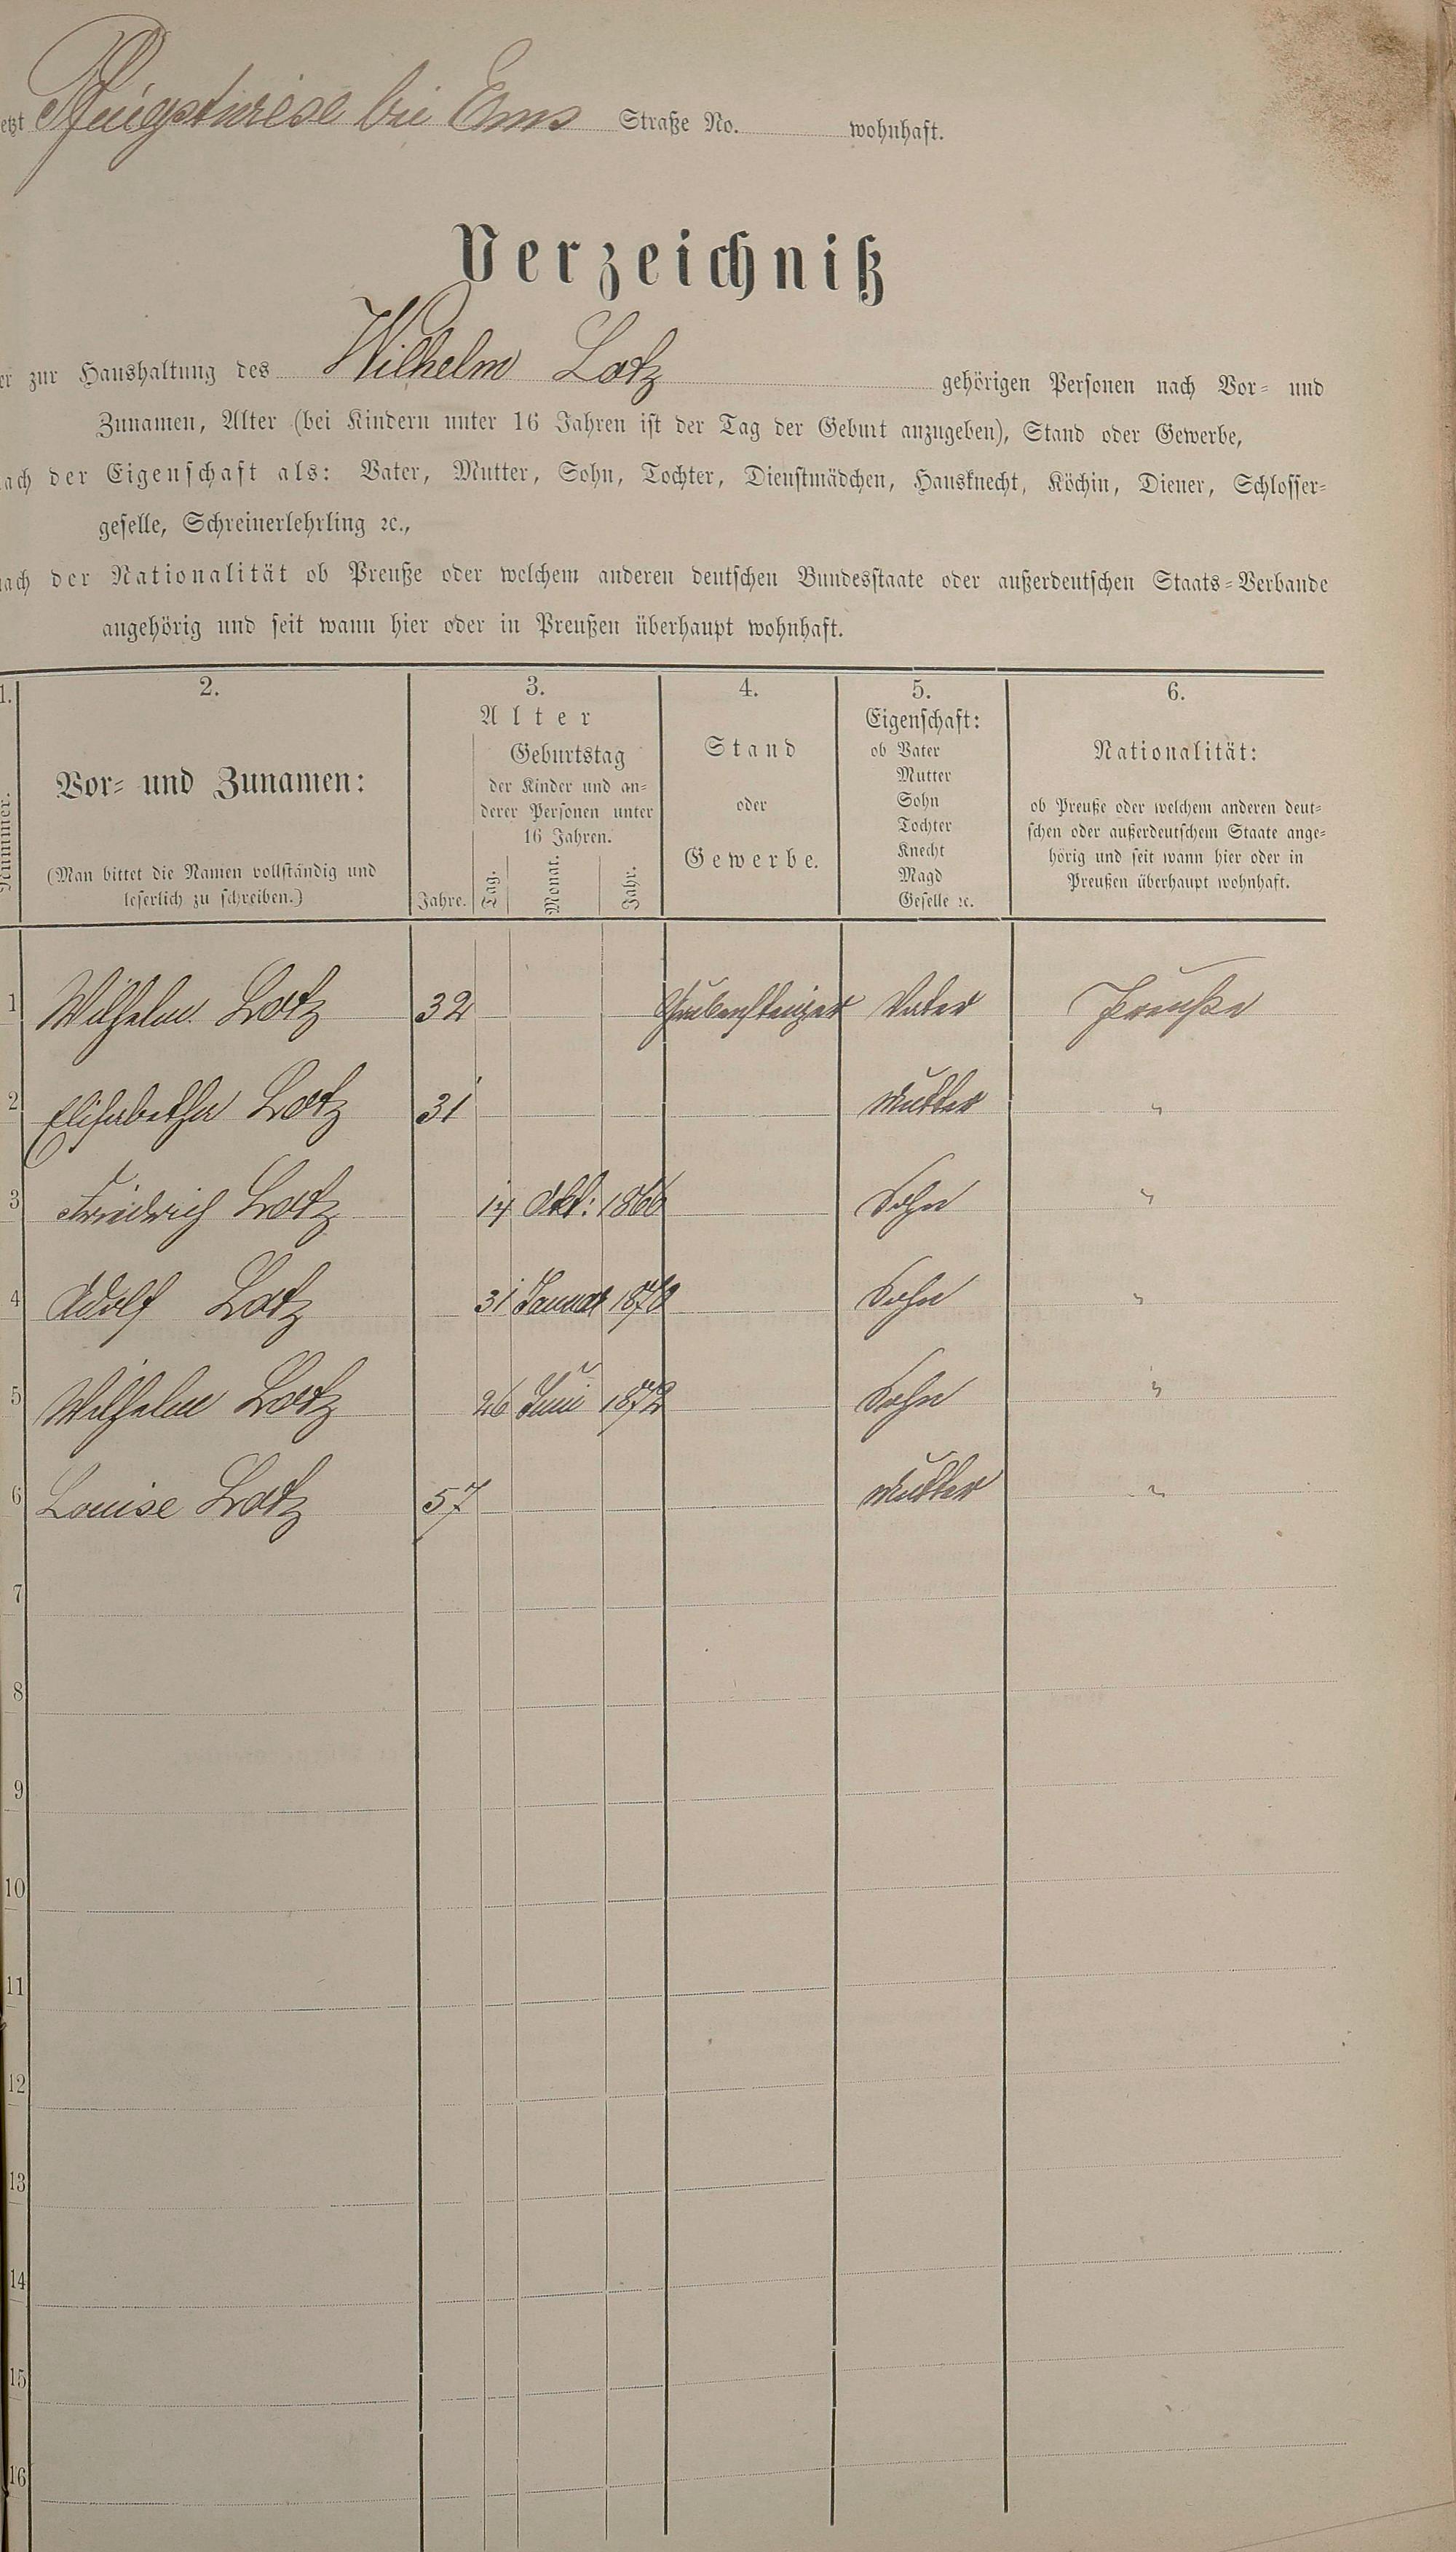 etzt Pfingstwiese bei Ems Straße No. wohnhaft.
Verzeichniß
er zur Haushaltung des Wilhelm Lotz gehörigen Personen nach Vor- und
Zunamen, Alter (bei Kindern unter 16 Jahren ist der Tag der Geburt anzugeben), Stand oder Gewerbe,
ach der Eigenschaft als: Vater, Mutter, Sohn, Tochter, Dienstmädchen, Hausknecht, Köchin, Diener, Schlosser-
geselle, Schreinerlehrling ꝛc.,
nach der Nationalität ob Preuße oder welchem anderen deutschen Bundesstaate oder außerdeutschen Staats-Verbande
angehörig und seit wann hier oder in Preußen überhaupt wohnhaft.
1. 2. 3. 4. 5. 6.
Nummer.
Vor- und Zunamen:
(Man bittet die Namen vollständig und
leserlich zu schreiben.)
Alter
Jahre.
Geburtstag
der Kinder und an-
derer Personen unter
16 Jahren.
Tag. Monat. Jahr.
Stand
oder
Gewerbe.
Eigenschaft:
ob Vater
Mutter
Sohn
Tochter
Knecht
Magd
Geselle ꝛc.
Nationalität:
ob Preuße oder welchem anderen deut-
schen oder außerdeutschem Staate ange-
hörig und seit wann hier oder in
Preußen überhaupt wohnhaft.
1 Wilhelm Lotz 32 Grubensteiger Vater Preuße
2 Elisabetha Lotz 31 Mutter "
3 Friedrich Lotz 14 Okt: 1866 Sohn "
4 Adolf Lotz 31 Januar 1870 Sohn "
5 Wilhelm Lotz 26 Juni 1872 Sohn "
6 Louise Lotz 57 Mutter "
7
8
9
10
11
12
13
14
15
16